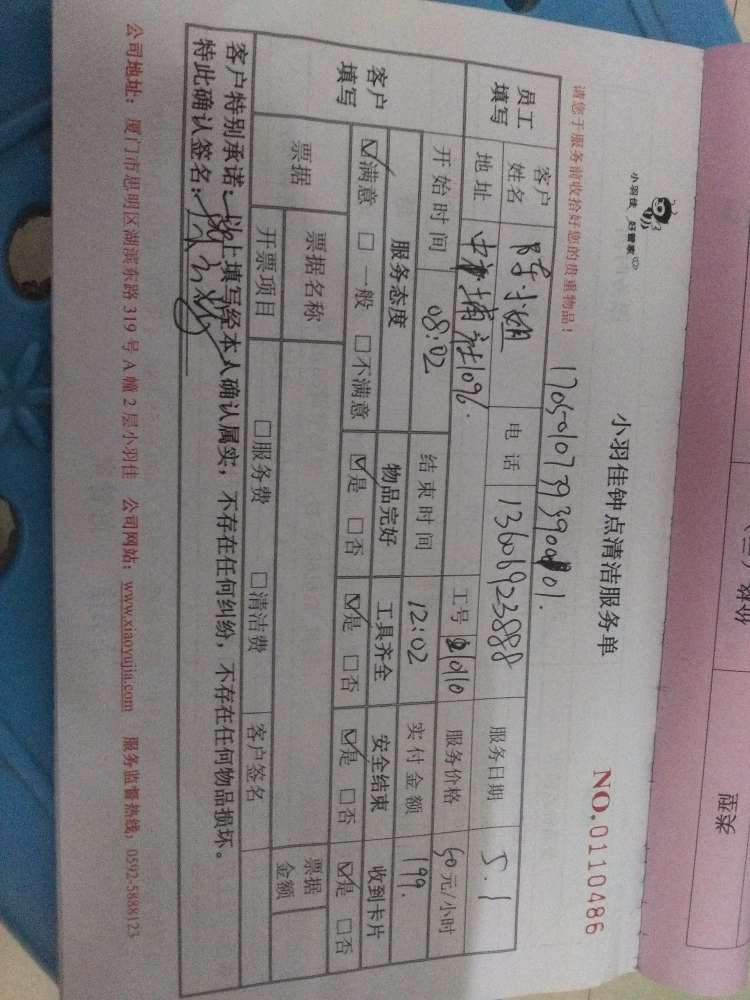 小羽佳 好管家
小羽佳钟点清洁服务单
NO.0110486
请您于服务前收拾好您的贵重物品！
员工填写
客户姓名 陈小姐 电话 13606923888 服务日期 5.1
地址 1096. 工号 服务价格 50元/小时
开始时间 08:02 结束时间 12:02 实付金额 199.
客户填写
服务态度 物品完好 工具齐全 安全结束 收到卡片
☑满意 □一般 □不满意 ☑是 □否 ☑是 □否 ☑是 □否 ☑是 □否
票据 票据名称 票据金额
开票项目 □服务费 □清洁费 客户签名
客户特别承诺：以上填写经本人确认属实，不存在任何纠纷，不存在任何物品损坏。
特此确认签名：
公司地址：厦门市思明区湖滨东路319号A幢2层小羽佳 公司网站：www.xiaoyujia.com 服务监督热线：0592-5888123
类型